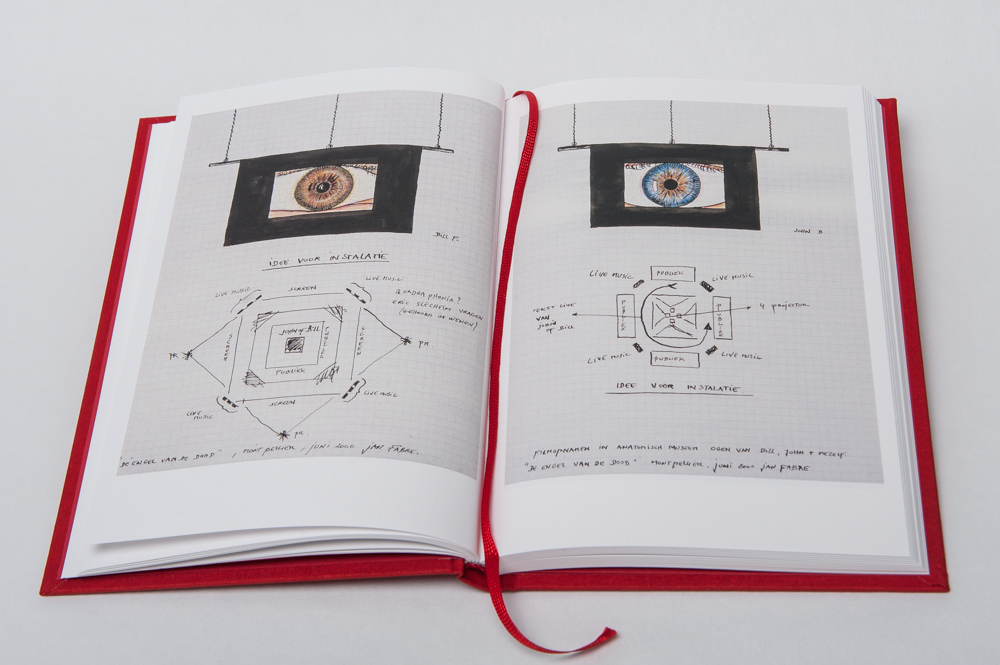 BILL F.
IDEE VOOR INSTALATIE
LIVE MUSIC
SCREEN
LIVE MUSIC
QUADRAPHONIA?
ERIC SLEICHIM VRAGEN
(GEHOORD IN WENEN)
SCREEN
JOHN of BILL
PUBLIEK
SCREEN
PR.
PR.
PUBLIEK
LIVE MUSIC
SCREEN
LIVE MUSIC
PR.
"DE ENGEL VAN DE DOOD", MONTPELLIER, JUNI 2000 JAN FABRE.
JOHN B
LIVE MUSIC
PUBLIEK
LIVE MUSIC
TEKST LIVE
VAN
JOHN
of BILL
PUBLIEK
PUBLIEK
4 PROJECTOR
LIVE MUSIC
PUBLIEK
LIVE MUSIC
IDEE VOOR INSTALATIE
FILMOPNAMEN IN ANATOMISCH MUSEUM OGEN VAN BILL, JOHN + MEZELF
"DE ENGEL VAN DE DOOD" MONTPELLIER, JUNI 2000 JAN FABRE